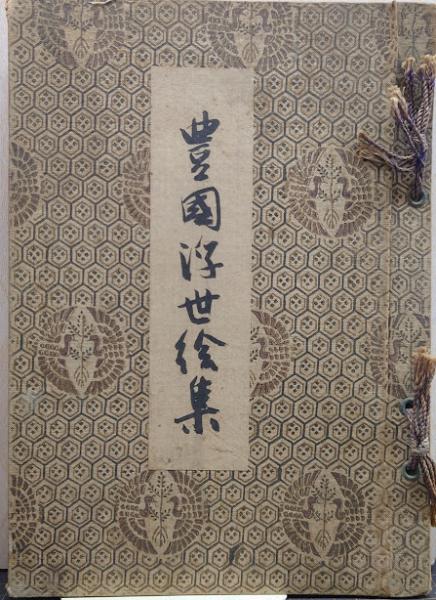 豊國浮世絵集